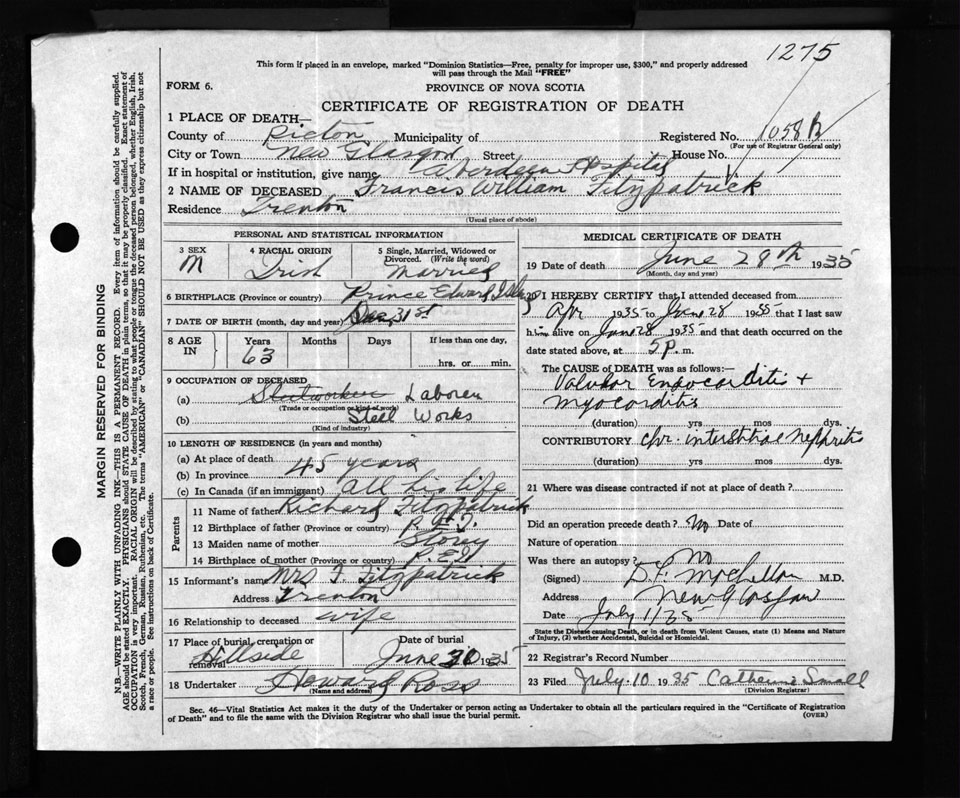 1275
This form if placed in an envelope, marked "Dominion Statistics—Free, penalty for improper use, $300," and properly addressed
will pass through the Mail "FREE"
FORM 6.
PROVINCE OF NOVA SCOTIA
CERTIFICATE OF REGISTRATION OF DEATH
1 PLACE OF DEATH—
County of Pictou Municipality of Registered No. 1058
(For use of Registrar General only)
City or Town New Glasgow Street House No.
If in hospital or institution, give name Aberdeen Hospital
2 NAME OF DECEASED Francis William Fitzpatrick
Residence Trenton
(Usual place of abode)
PERSONAL AND STATISTICAL INFORMATION
3 SEX
M
4 RACIAL ORIGIN
Irish
5 Single, Married, Widowed or
Divorced. (Write the word)
Married
6 BIRTHPLACE (Province or country) Prince Edward Island
7 DATE OF BIRTH (month, day and year) 31st
8 AGE
IN
Years
63
Months
Days
If less than one day,
hrs. or min.
9 OCCUPATION OF DECEASED
(a) Steelworker Laborer
(Trade or occupation or kind of work)
(b) Steel Works
(Kind of industry)
10 LENGTH OF RESIDENCE (in years and months)
(a) At place of death
45 years
(b) In province
(c) In Canada (if an immigrant) all his life
Parents
11 Name of father Richard Fitzpatrick
12 Birthplace of father (Province or country) P.E.I.
13 Maiden name of mother Storey
14 Birthplace of mother (Province or country) P.E.I
15 Informant's name Mrs F. Fitzpatrick
Address Trenton
16 Relationship to deceased wife
17 Place of burial, cremation or
removal Hillside
Date of burial
June 30 1935
18 Undertaker Howard Ross
(Name and address)
MEDICAL CERTIFICATE OF DEATH
19 Date of death June 28th 1935
(Month, day and year)
20 I HEREBY CERTIFY that I attended deceased from
Apr 1935 to June 28 1935 that I last saw
him alive on June 28 1935 and that death occurred on the
date stated above, at 5 P. m.
The CAUSE OF DEATH was as follows:—
Valvular Endocarditis +
Myocarditis
(duration) yrs mos dys.
CONTRIBUTORY chr. interstitial nephritis
(duration) yrs mos dys.
21 Where was disease contracted if not at place of death?
Did an operation precede death? No Date of
Nature of operation
Was there an autopsy? No
(Signed) M.D.
Address New Glasgow
Date July 1/35
State the Disease causing Death, or in death from Violent Causes, state (1) Means and Nature
of Injury, (2) whether Accidental, Suicidal or Homicidal.
22 Registrar's Record Number
23 Filed July 10 1935 Catherine Small
(Division Registrar)
Sec. 46—Vital Statistics Act makes it the duty of the Undertaker or person acting as Undertaker to obtain all the particulars required in the "Certificate of Registration
of Death" and to file the same with the Division Registrar who shall issue the burial permit.
(OVER)
MARGIN RESERVED FOR BINDING
N.B.—WRITE PLAINLY, WITH UNFADING INK—THIS IS A PERMANENT RECORD. Every item of information should be carefully supplied.
AGE should be stated EXACTLY. PHYSICIANS should STATE CAUSE OF DEATH in plain terms, so that it may be properly classified. Exact statement of
OCCUPATION is very important. RACIAL ORIGIN will be described by stating to what people or tongue the deceased person belonged, whether English, Irish,
Scotch, French, German, Russian, Ruthenian, etc. The terms "AMERICAN" or "CANADIAN" SHOULD NOT BE USED as they express citizenship but not
a race or people. See instructions on back of Certificate.